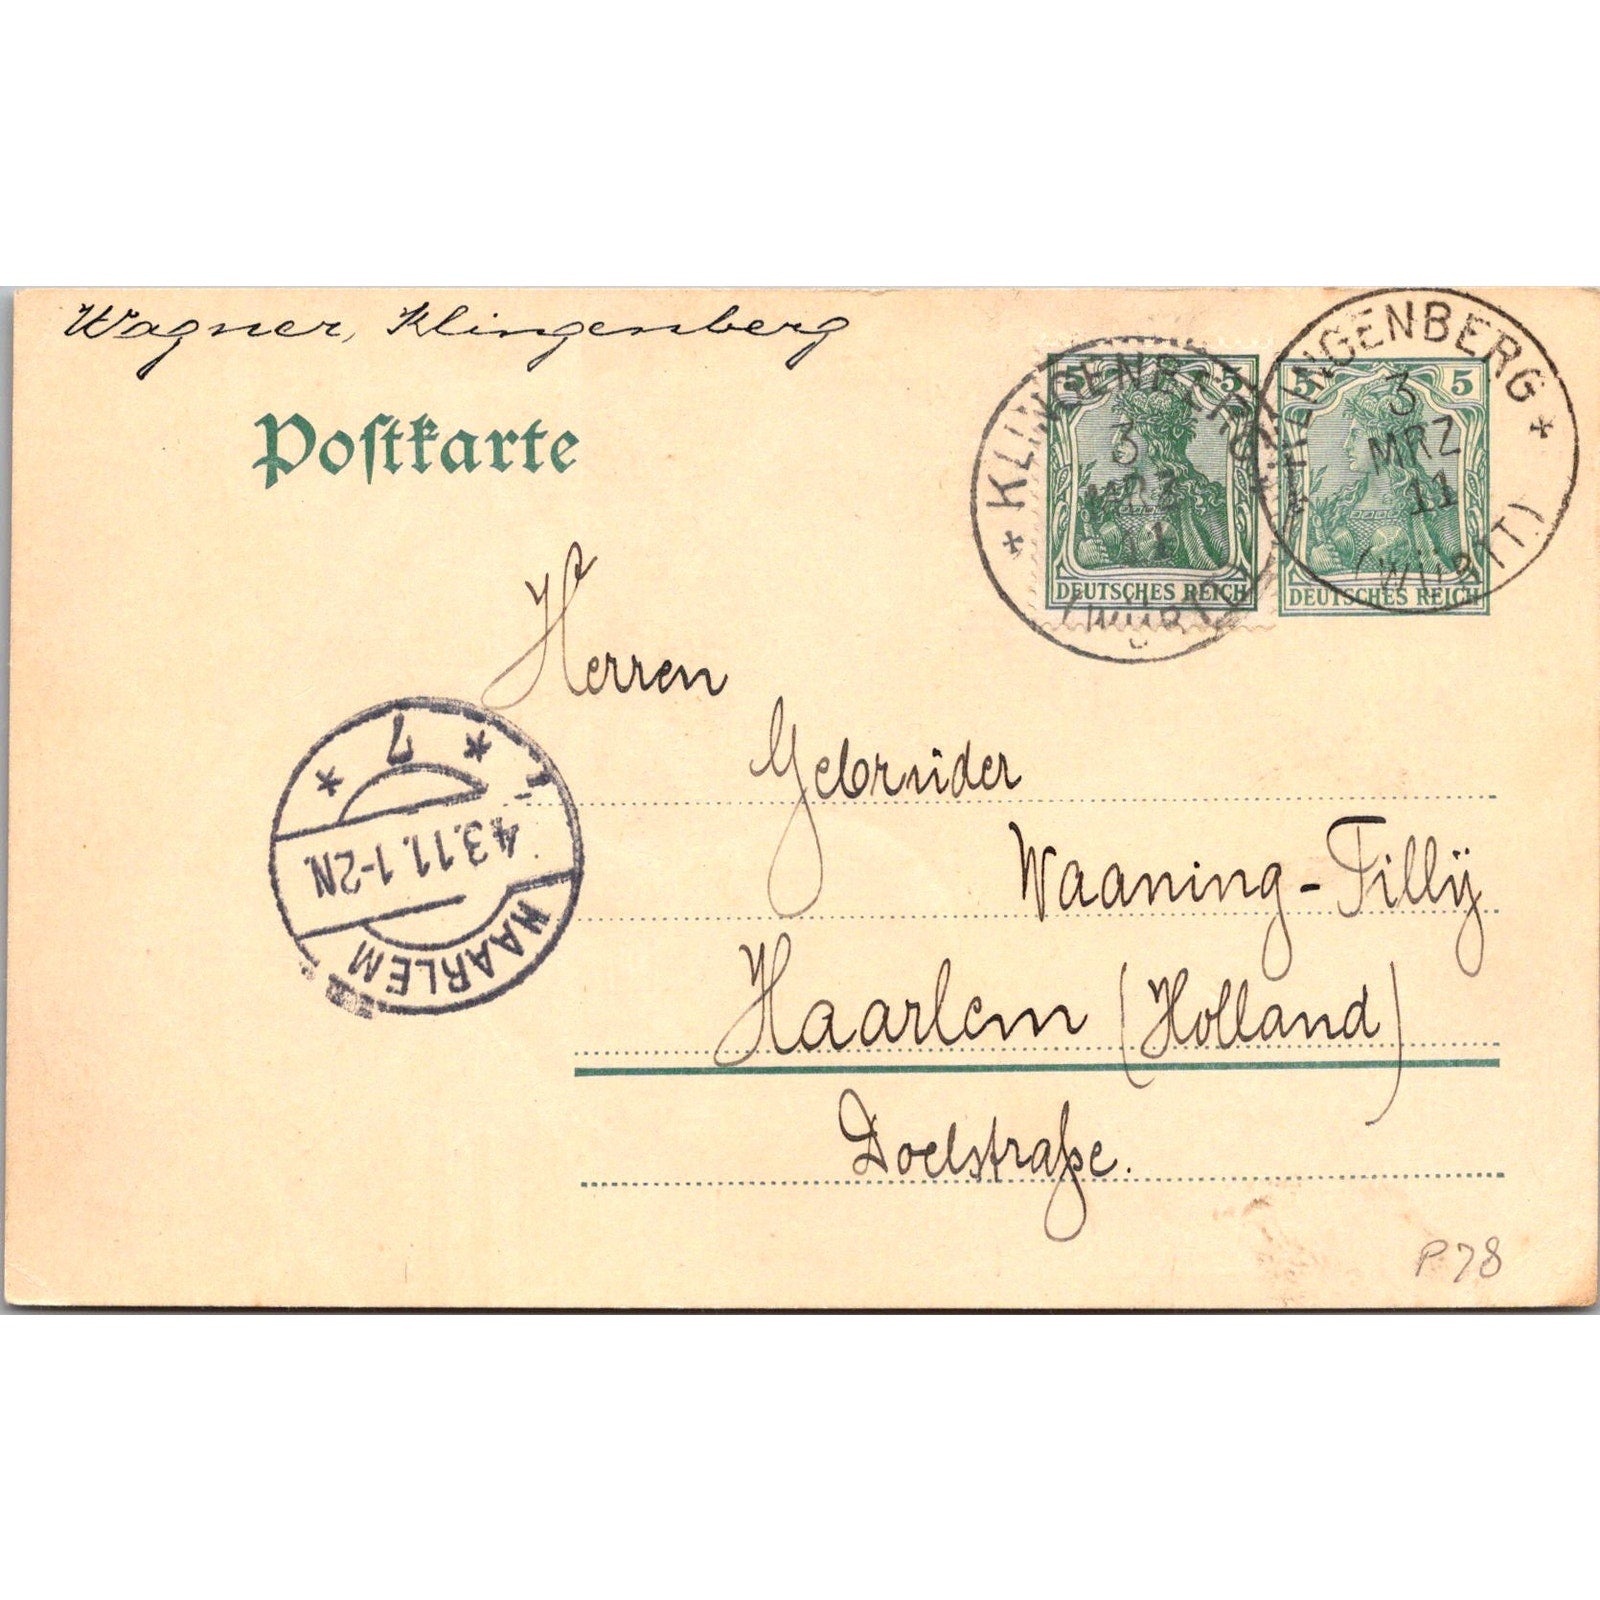 Wagner, Klingenberg
Postkarte
5 5
DEUTSCHES REICH
5 5
DEUTSCHES REICH
* KLINGENBERG *
3
MRZ
11
(WÜRTT.)
KLINGENBERG *
3
MRZ
11
(WÜRTT.)
Herren
Gebrüder
Waaning-Tillÿ
Haarlem (Holland)
Doelstraße.
HAARLEM
4.3.11.1-2N.
* 7 *
P78